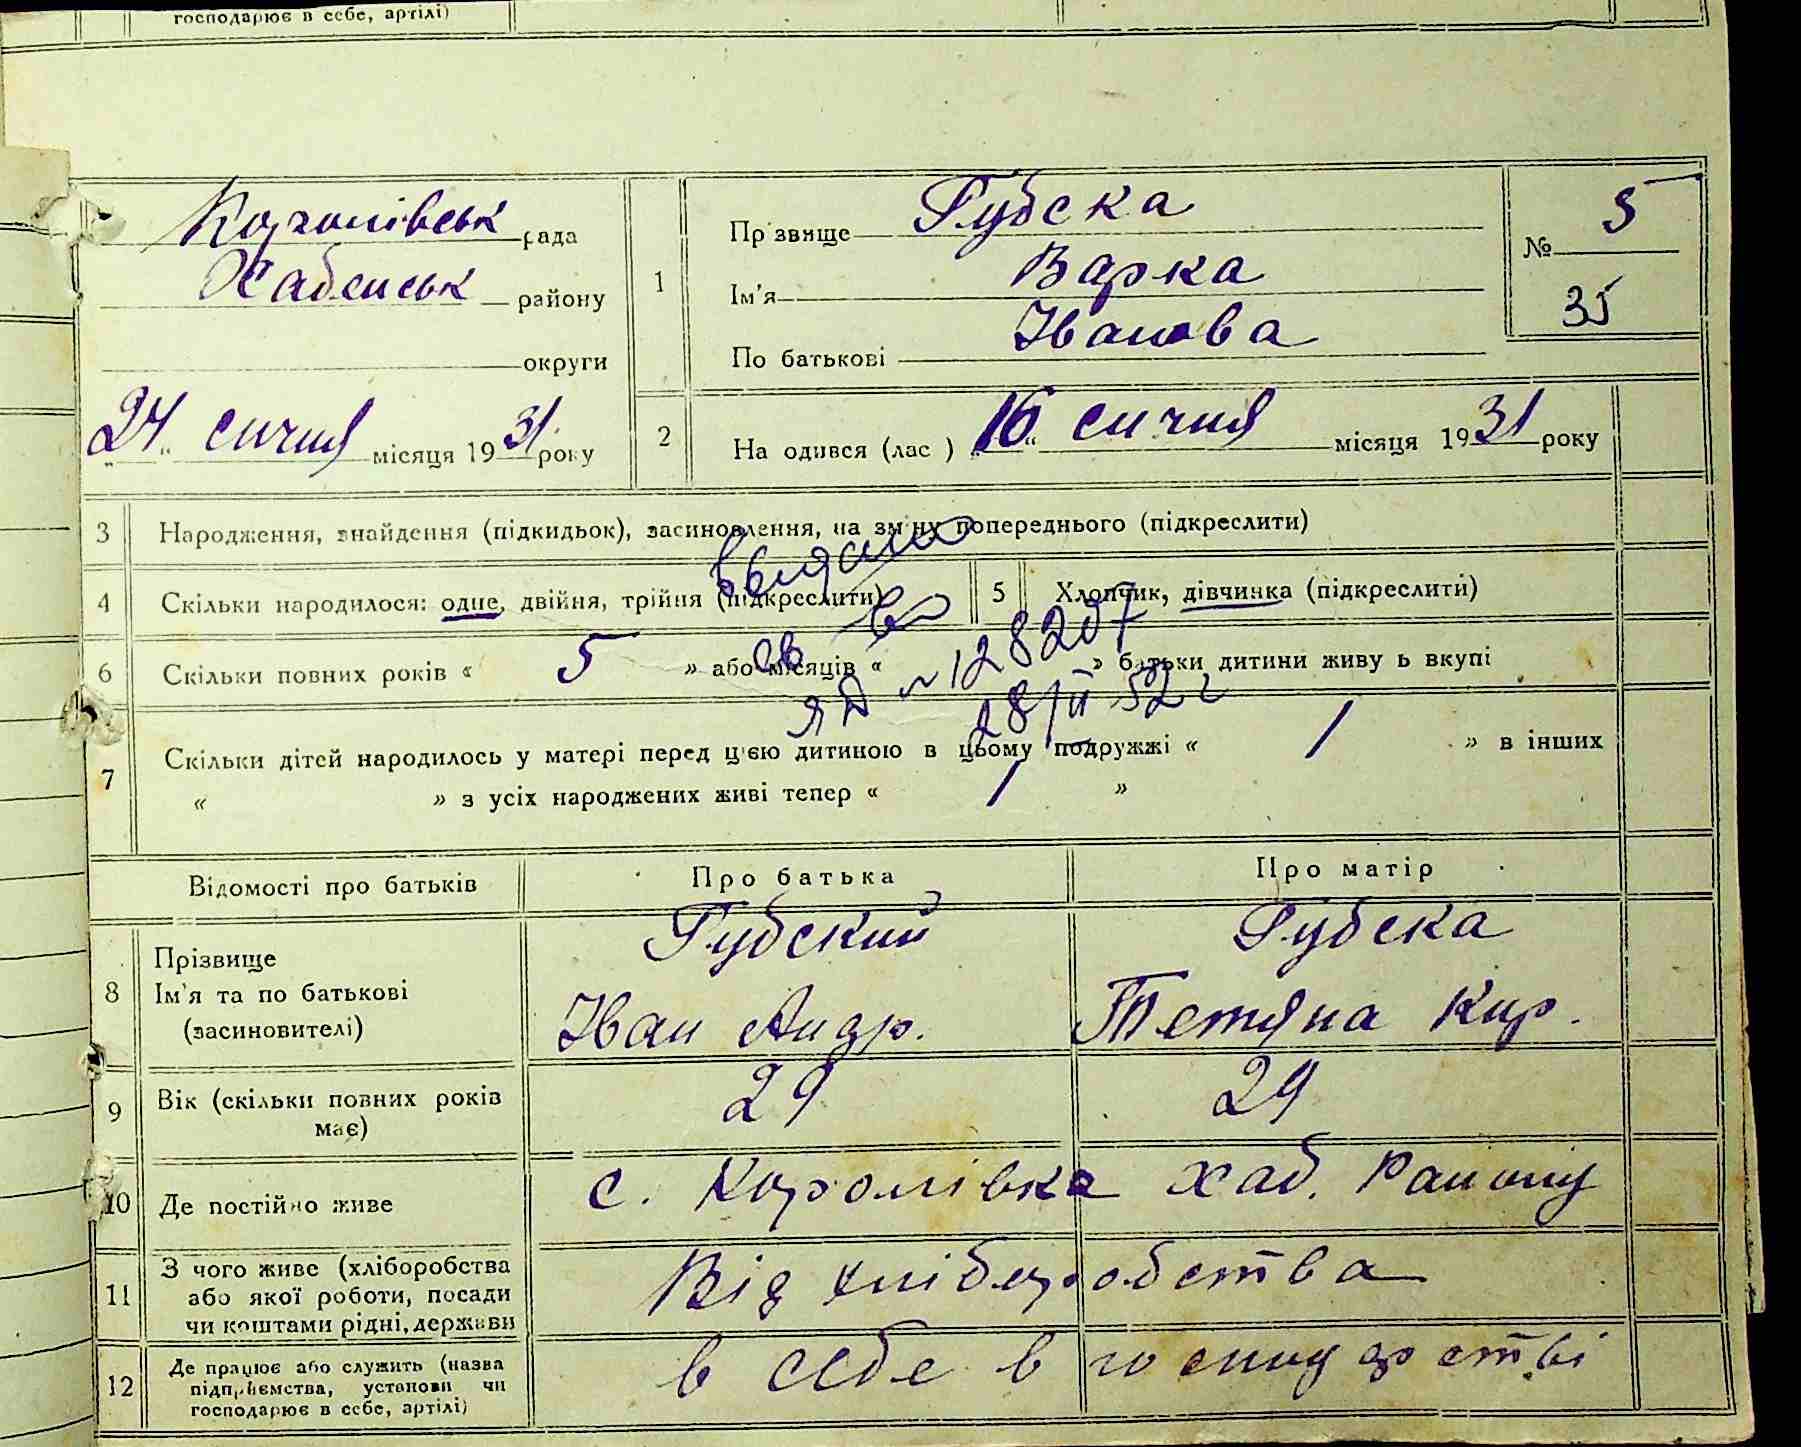 господарює в себе, артілі)
Королівськ рада
Хабенськ району
округи
24 " січня місяця 1931 року
1
Прізвище Губска
Ім'я Варка
По батькові Іванова
№ 5
35
2 На одився (лас ) 16 " січня місяця 1931 року
3 Народження, знайдення (підкидьок), засиновлення, на зміну попереднього (підкреслити)
4 Скільки народилося: одне, двійня, трійня (підкреслити)
5 Хлопчик, дівчинка (підкреслити)
выдано
св-во
6 Скільки повних років « 5 » або місяців « » батьки дитини живу ь вкупі
ЯД № 128207
28/II 52 г
7 Скільки дітей народилось у матері перед цією дитиною в цьому подружжі « 1 » в інших
« » з усіх народжених живі тепер « 1 »
Відомості про батьків Про батька Про матір
8 Прізвище Губский Губска
Ім'я та по батькові Іван Андр. Тетяна Кир.
(засиновителі)
9 Вік (скільки повних років має) 29 29
10 Де постійно живе с. Королівка Хаб. Району
11 З чого живе (хліборобства
або якої роботи, посади
чи коштами рідні, держави
Від хліборобства
12 Де працює або служить (назва
підприємства, установи чи
господарює в себе, артілі)
в себе в господарстві